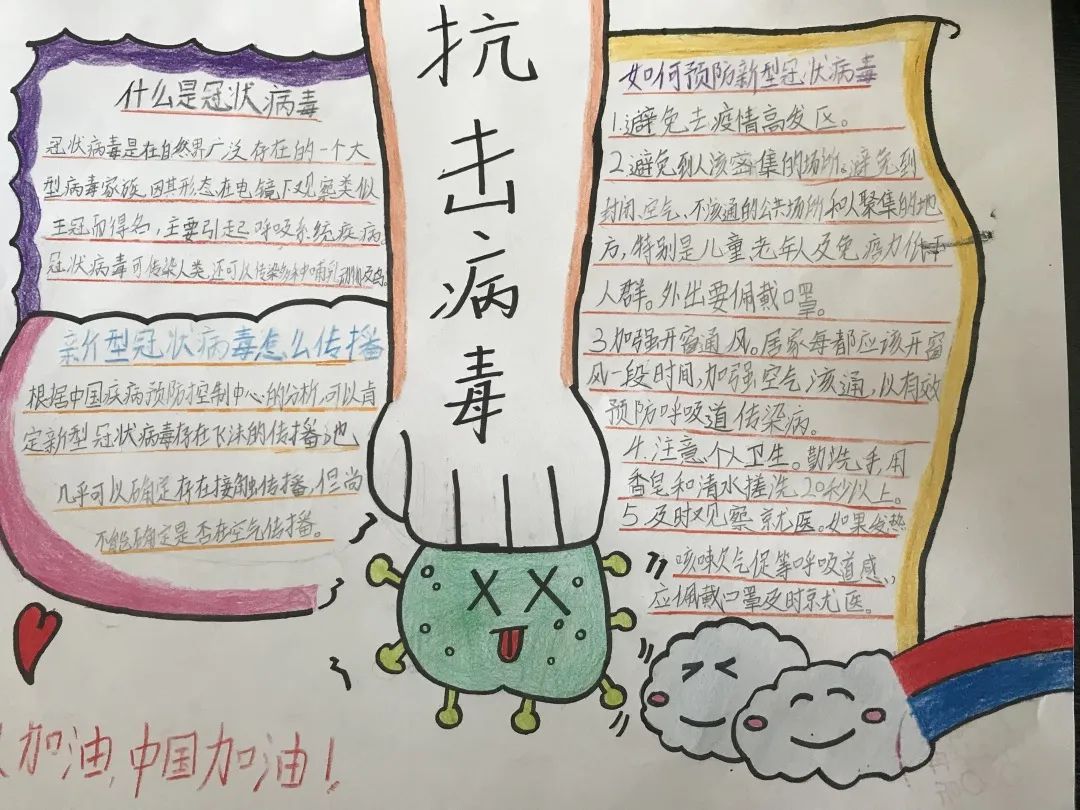 抗击病毒
什么是冠状病毒
冠状病毒是在自然界广泛存在的一个大
型病毒家族,因其形态在电镜下观察类似
王冠而得名,主要引起呼吸系统疾病。
冠状病毒可传染人类,还可以传染多种哺乳动物及鸟。
新型冠状病毒怎么传播
根据中国疾病预防控制中心的分析,可以肯
定新型冠状病毒存在飞沫的传播
几乎可以确定存在接触传播,但尚
不能确定是否在空气传播。
如何预防新型冠状病毒
1.避免去疫情高发区。
2.避免到人流密集的场所。避免到
封闭、空气、不流通的公共场所和人聚集的地
方,特别是儿童、老年人及免疫力低下
人群。外出要佩戴口罩。
3.加强开窗通风。居家每都应该开窗
风一段时间,加强空气流通,以有效
预防呼吸道传染病。
4.注意个人卫生。勤洗手,用
香皂和清水搓洗20秒以上。
5.及时观察就医。如果发热
咳嗽欠气促等呼吸道感,
应佩戴口罩及时就医。
加油,中国加油!